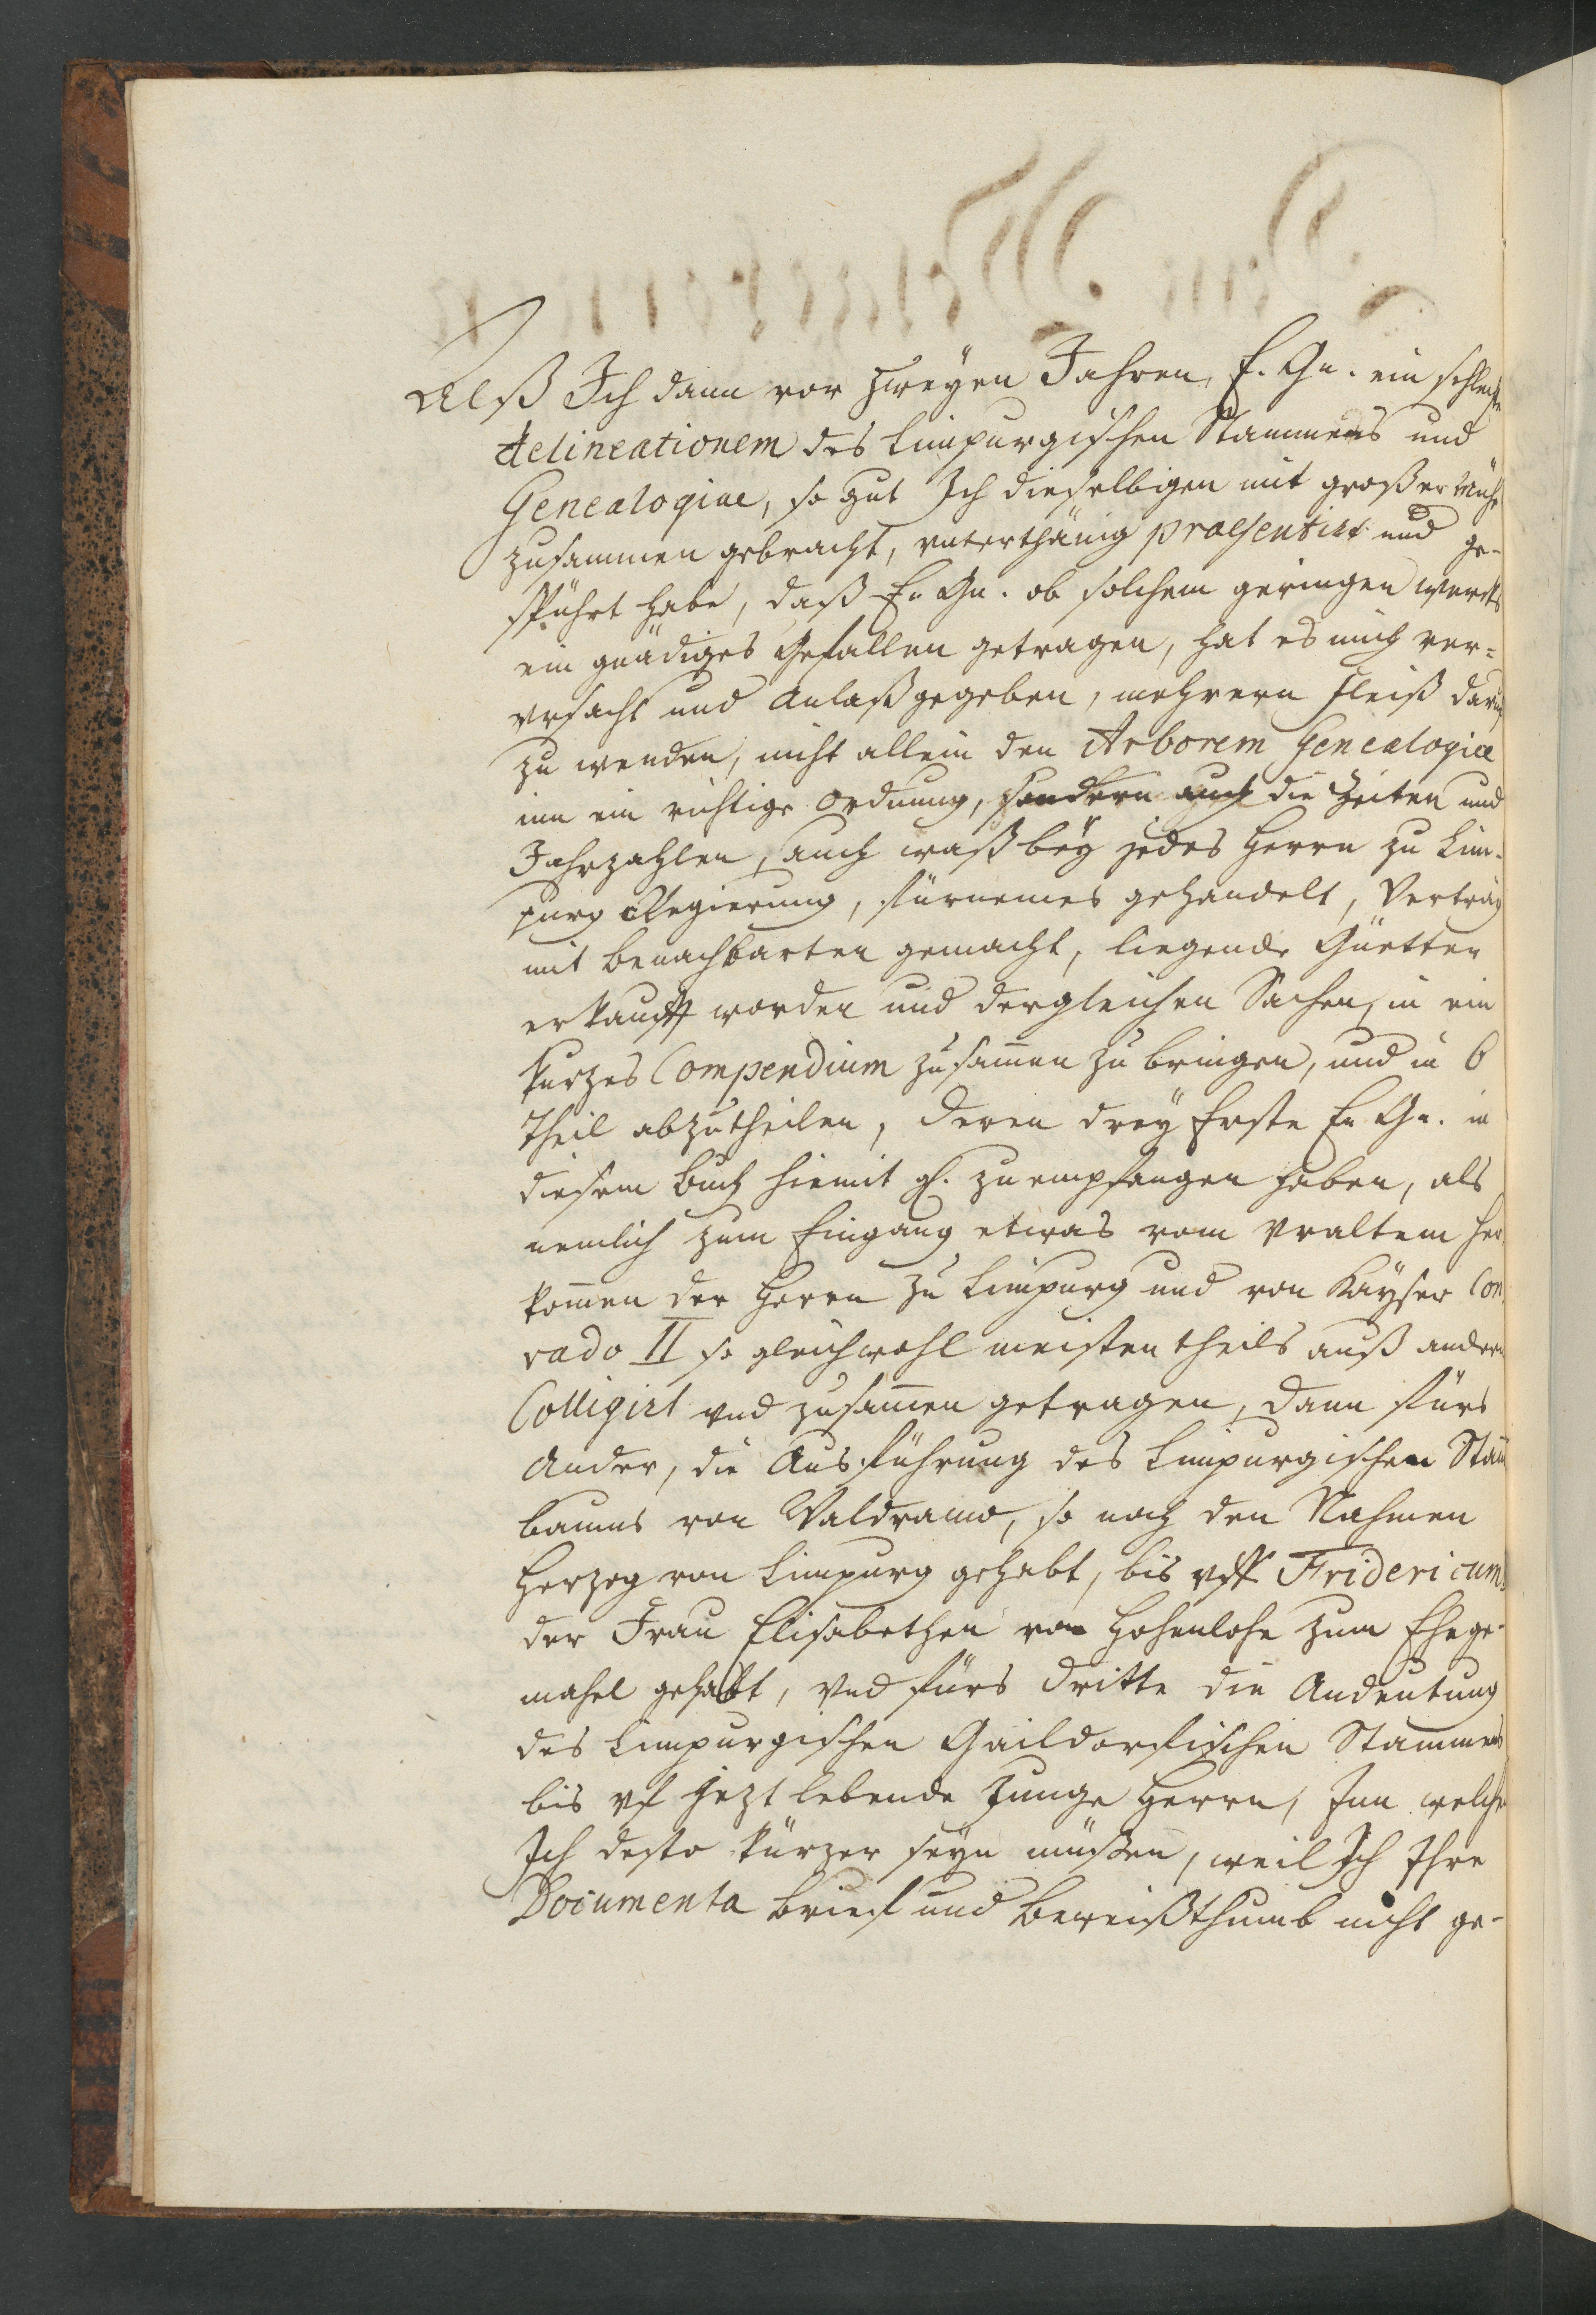 Alß Ich dann vor zweyen Jahren, E. Gn. ein schlechte
delineationem des Limpurgischen Stammens und
Genealogiae, so gut Ich dieselbigen mit großer mühe
zusammen gebracht, unterthänig praesentirt und ge-
spührt habe, daß E. Gn. ob solchem geringen werckh
ein gnädiges Gefallen getragen, hat es mich ver=
vrsacht und Anlaß gegeben, mehrern fleiß daruf
zu wenden, nicht allein den Arborem Genealogiae
inn ein richtige ordnung, sondern auch die Zeiten und
Jahrzahlen, auch waß bey jedes Herrn zu Lim-
purg Regierung, fürnemes gehandelt, Verträg
mit benachbarten gemacht, liegende Güetter
erkaufft worden und dergleichen Sachen, in ein
kurzes Compendium zusam̄en zu bringen, und in 6
theil abzutheilen, deren drey Erste E. Gn. in
diesem Buch hiemit g. zu empfangen haben, als
nemlich zum Eingang etwas vom vraltem her-
kom̄en der Herrn zu Limpurg und von Kayser Con-
rado II so gleichwohl meisten theils auß andern
Colligirt vnd zusam̄en getragen, dann fürs
Ander, die Ausführung des Limpurgischen Stam̄
baums von Waldramo, so noch den Nahmen
Herzog von Limpurg gehabt, bis vff Fridericum,
der Frau Elisabethen von Hohenlohe zum Ehege-
mahel gehabt, Vnd fürs dritte die Andeutung
des Limpurgischen Gaildorfischen Stammens
bis vf jezt lebende Junge Herrn, Inn welchem
Ich desto kürzer seyn müßen, weil Ich Ihre
Documenta brief und beweißthumb nicht ge-